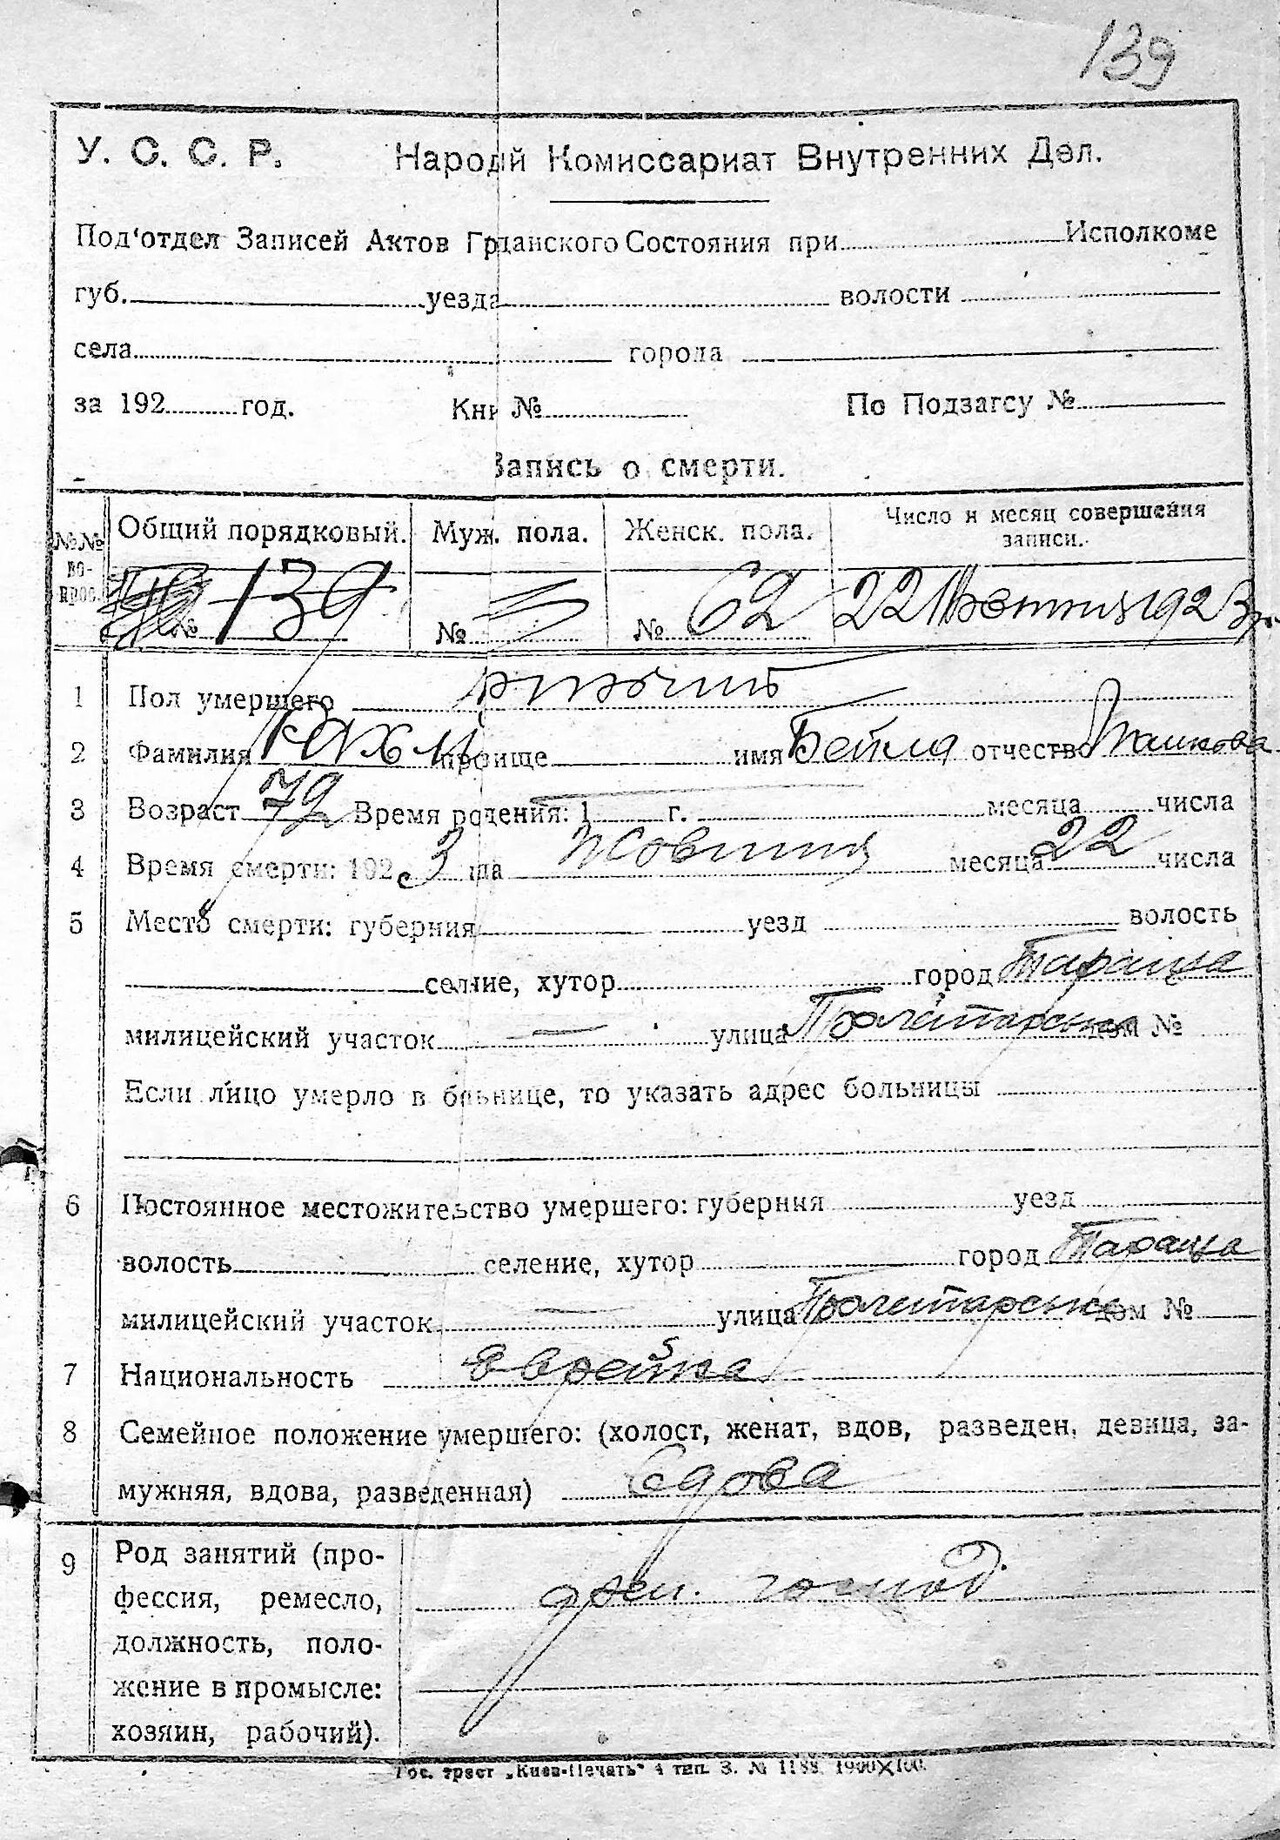 139
У. С. С. Р. Народй Комиссариат Внутренних Дел.
Под'отдел Записей Актов Грданского Состояния при Исполкоме
губ. уезда волости
села города
за 192 год. Кни № По Подзагсу №
Запись о смерти.
№№ во- прос. Общий порядковый. Муж. пола. Женск. пола. Число и месяц совершения записи.
№ 139 № № 62 22 1923 р.
1 Пол умершего
2 Фамилия прозвище имя Бейла отчество
3 Возраст 72 Время родения: 1 г. месяца числа
4 Время смерти: 1923 да Жовтня месяца 22 числа
5 Место смерти: губерния уезд волость
селние, хутор город Тараща
милицейский участок — улица Пролетарська дом №
Если лицо умерло в больнице, то указать адрес больницы
6 Постоянное местожительство умершего: губерния уезд
волость селение, хутор город Тараща
милицейский участок — улица Пролетарська дом №
7 Национальность еврейка
8 Семейное положение умершего: (холост, женат, вдов, разведен, девица, за-
мужняя, вдова, разведенная) вдова
9 Род занятий (про-
фессия, ремесло, дом. господ.
должность, поло-
жение в промысле:
хозяин, рабочий).
Гос. трест „Киев-Печать“ 4 тип. З. № 1188. 1900×100.